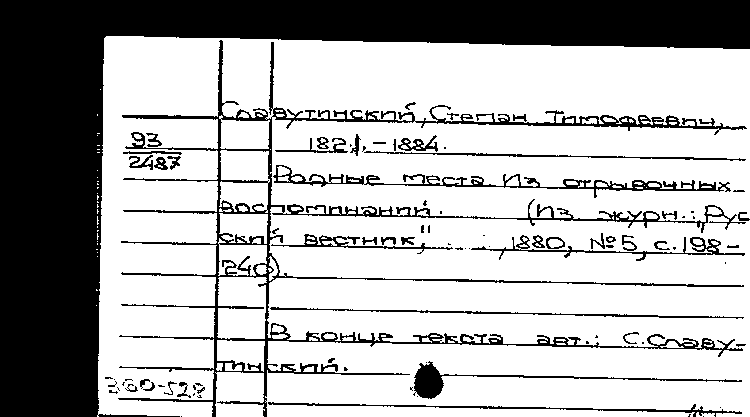 Славутинский, Степан Тимофеевич,
93
1821. – 1884.
2487
Родные места. Из отрывочных
воспоминаний. (Из журн.: „Рус
ский вестник", 1880, № 5, с. 198 –
240).
В конце текста авт.: С. Славу-
тинский.
380-528